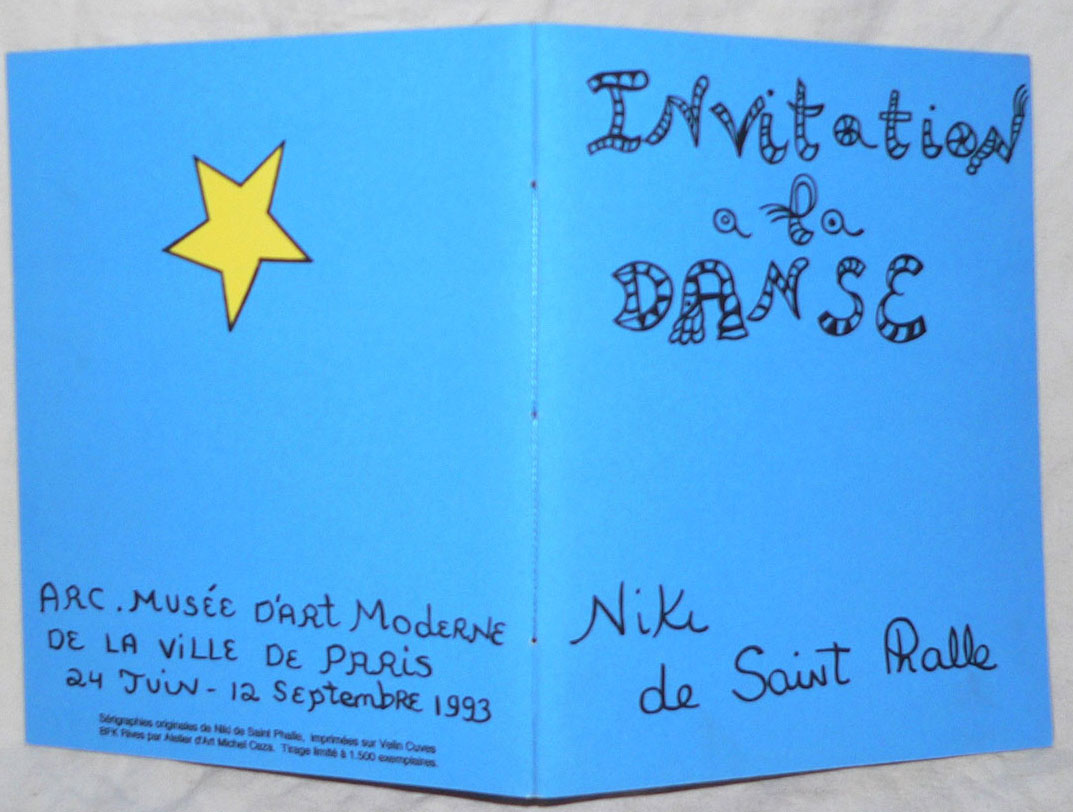 Invitation
a la
DANSE
Niki
de Saint Phalle
ARC. MUSÉE D'ART MODERNE
DE LA VILLE DE PARIS
24 JUIN - 12 SEPTEMBRE 1993
Sérigraphies originales de Niki de Saint Phalle, imprimées sur Velin Cuves
BFK Rives par Atelier d'Art Michel Caza. Tirage limité à 1.500 exemplaires.